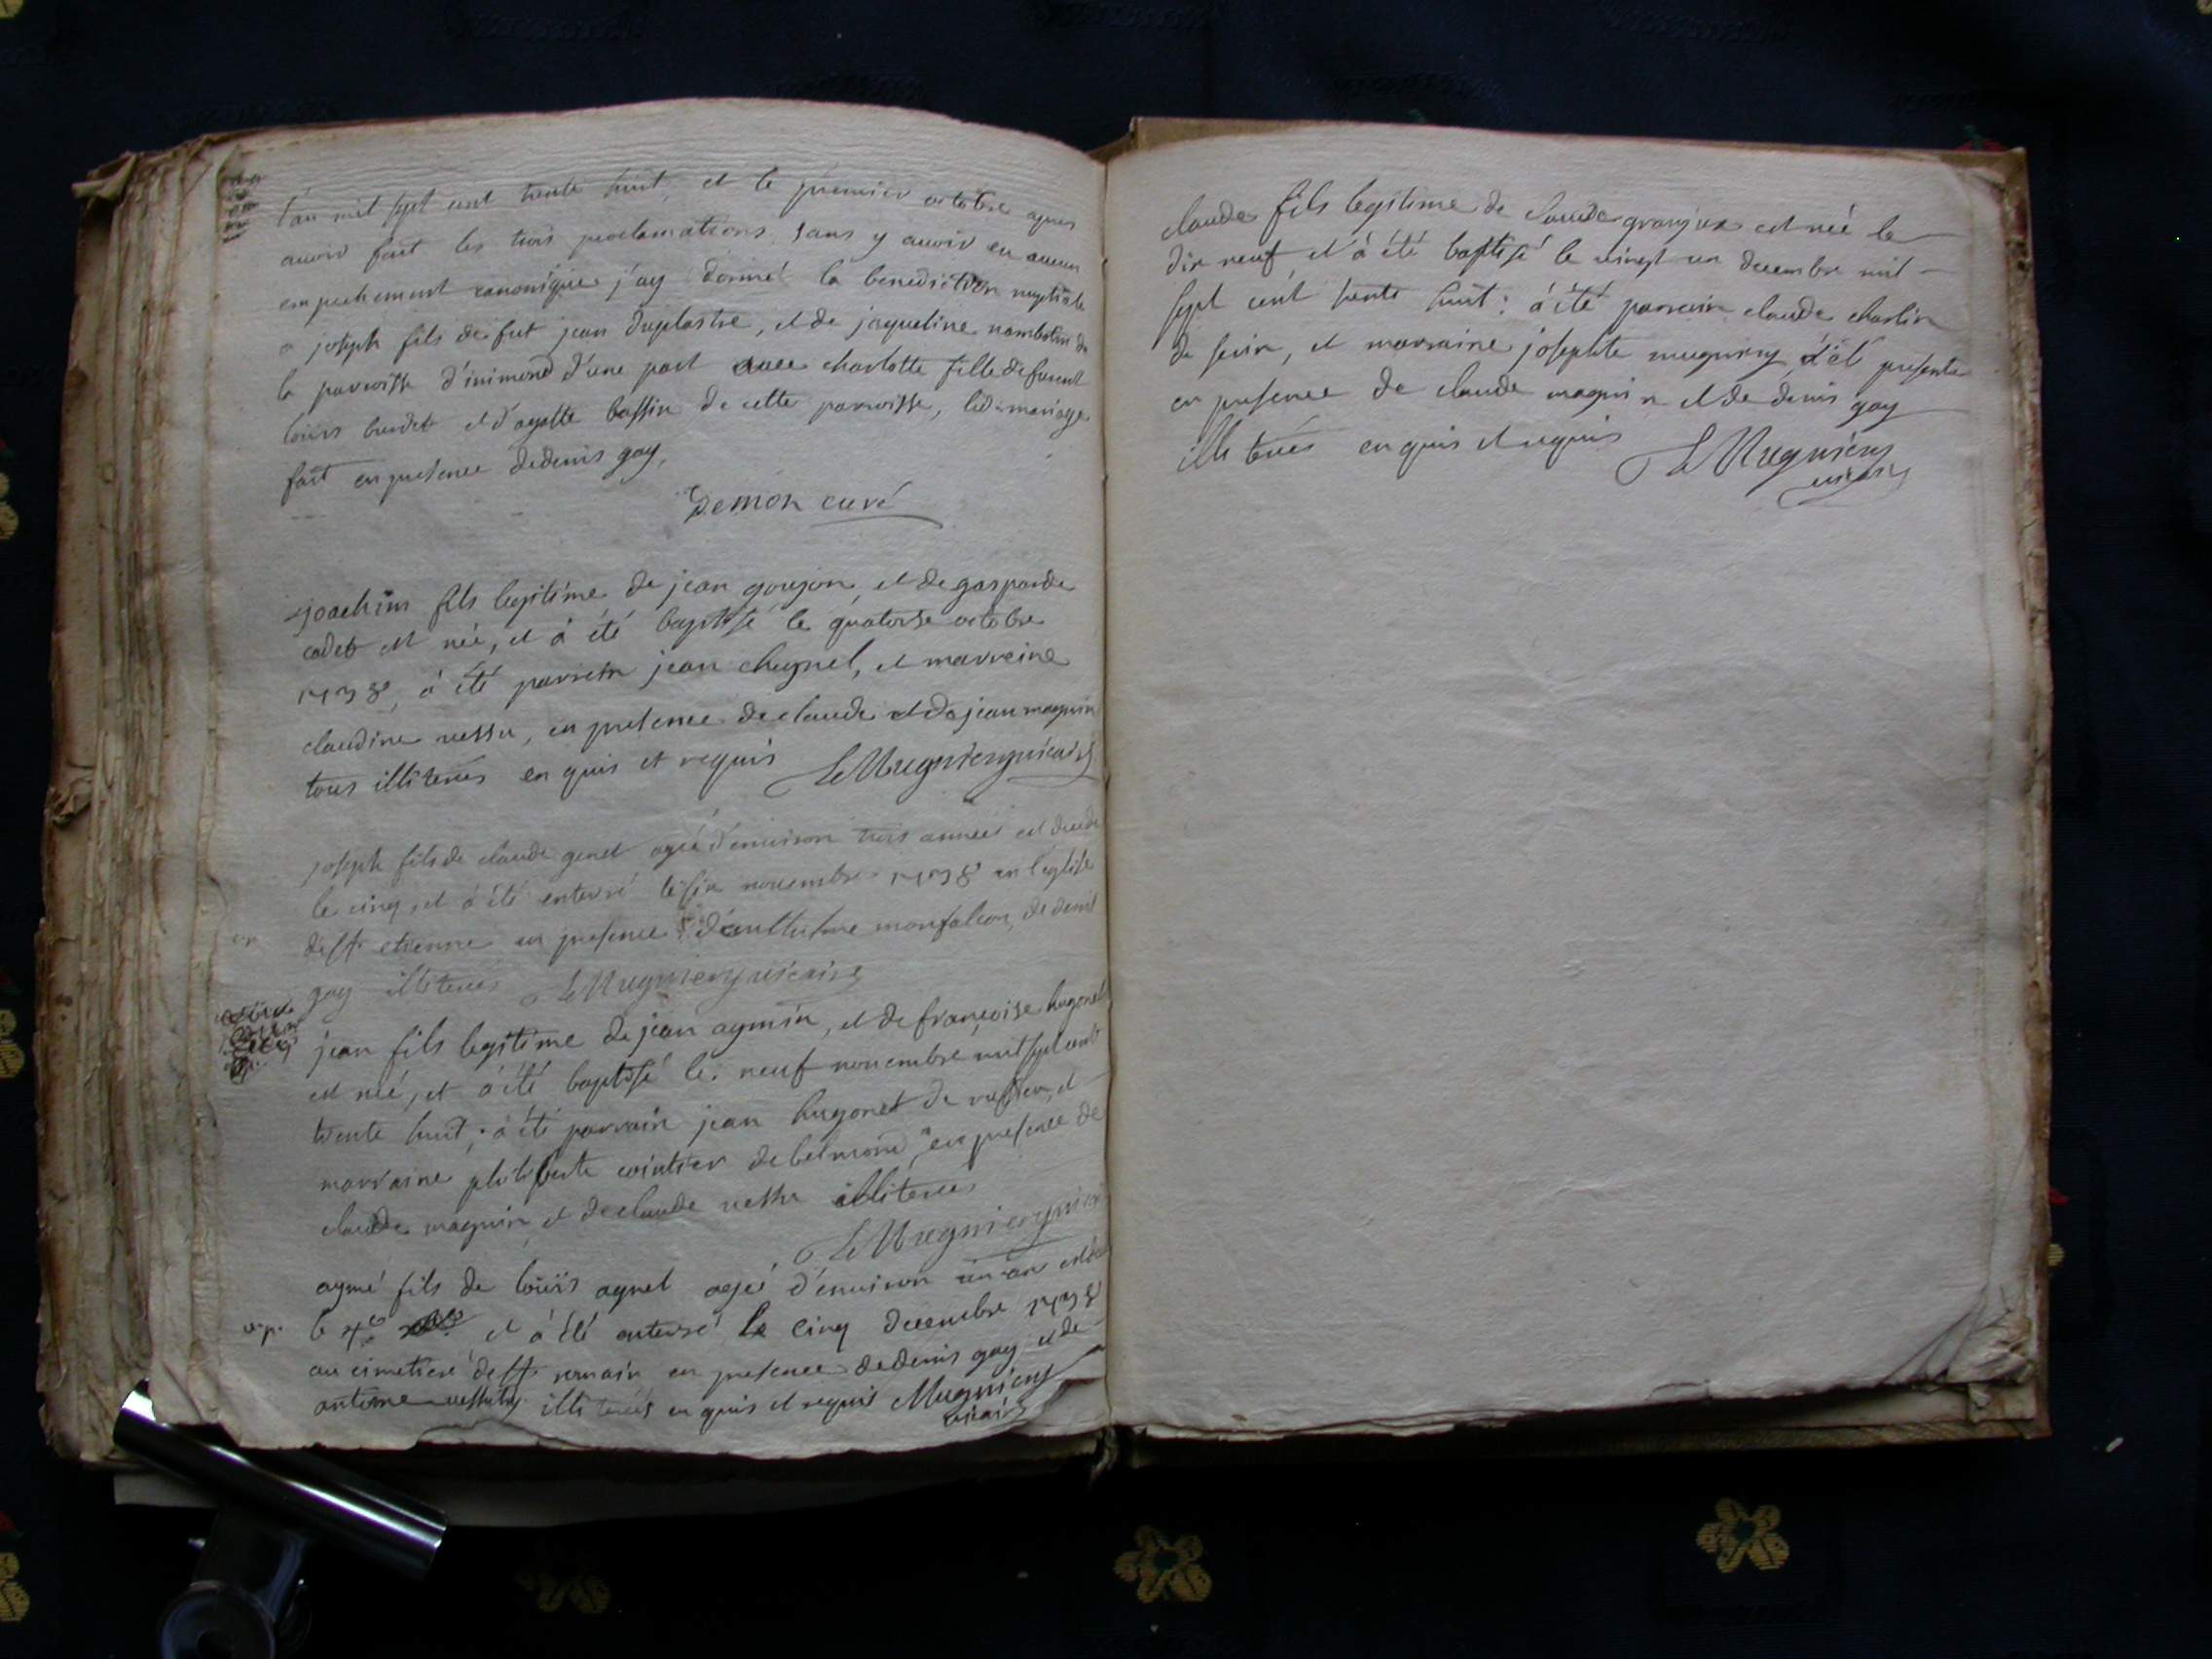 l'an mil sept cent trente huit, et le premier octobre apres
avoir fait les trois proclamations, sans y avoir eu aucun
empechement canonique j'ay donné la benediction nuptiale
a joseph fils de feut jean duplastre, et de jaqueline nambotin de
la parroisse d'inimond d'une part avec charlotte fille defunt
loüis burdet et d'ayatte bassin de cette parroisse, led. mariage
fait en presence de denis gay,
demon curé
joachim fils legitime de jean goujon, et de gasparde
cadet est née, et à été baptisé le quatorse octobre
1738, à été parrein jean chugnel, et marreine
claudine vessu, en presence de claude et de jean magnin
tous illiterés en quis et requis LeMugnieryvicaire
joseph fils de claude genet agé d'environ trois années est decedé
le cinq, et à été enterré le six novembre 1738 en l'eglise
de st etienne en presence d'anthelme monfalcon, de denis
gay illiterés LeMugnieryvicaire
jean fils legitime de jean aymin, et de françoise hugonet
est née, et à été baptisé le neuf novembre mil sept cent
trente huit; à été parrain jean hugonet de et
marraine philiberte cointier de belmond, en presence de
claude magnin, et de claude vessu illiterés
LeMugniery
aymé fils de loüis aynel agé d'environ un an
v.p. le 4e et à été enterré le cinq decembre 1738
au cimetiere de st romain en presence de denis gay, et de
antoine illiterés en quis et requis Mugniery
vicaire
claude fils legitime de claude granjux est née le
dix neuf et à été baptisé le vingt un decembre mil
sept cent trente huit: à été parrain claude charlin
de sevin, et marraine josephte mugniery
en presence de claude magnin et de denis gay
illiterés en quis et requis LeMugniery
vicaire